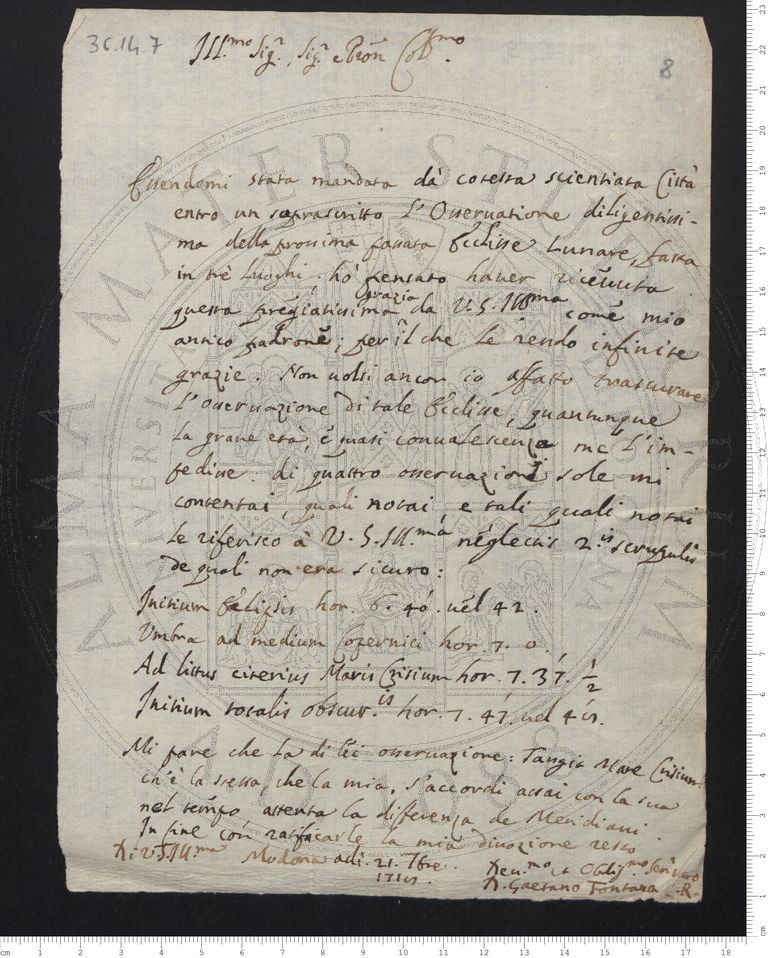 36.14.7
8
Ill.mo Sig.r, Sig.r e Pron Col.mo
Essendomi stata mandata dà cotesta scientiata Città
entro un soprascritto l'Osservatione diligentissi-
ma della prossima passata Ecclisse Lunare, fatta
in trè luoghi: hò pensato haver ricevuta
questa pregiatissima grazia da V.S.Ill.ma come mio
antico padrone; per il che le rendo infinite
grazie. Non volsi ancor io affatto trascurare
l'osservazione di tale Ecclisse, quantunque
la grave età, e quasi convalescenza me l'im-
pedisse. di quattro osservazioni sole mi
contentai, quali notai, e tali quali notai
le riferisco à V.S.Ill.ma neglectis 2.is scrupulis
de quali non era sicuro:
Initium Eclipsis hor. 6. 40. vel 42.
Umbra ad medium Copernici hor. 7. 0.
Ad littus citerius Maris Crisium hor. 7. 37. 1/2
Initium totalis obscur.is hor. 7. 47. vel
Mi pare che la di lei osservazione: Tangit Mare Crisium:
ch'è la stessa, che la mia, s'accordi assai con la sua
nel tempo attenta la differenza de Meridiani.
In fine con ratificarle la mia divozione resto
Di V.S.Ill.ma Modona adi 21. 7bre
Dev.mo et Oblig.mo
D. Gaetano Fontana C.R.
ALMA MATER STUDIORUM
A.D. 1088